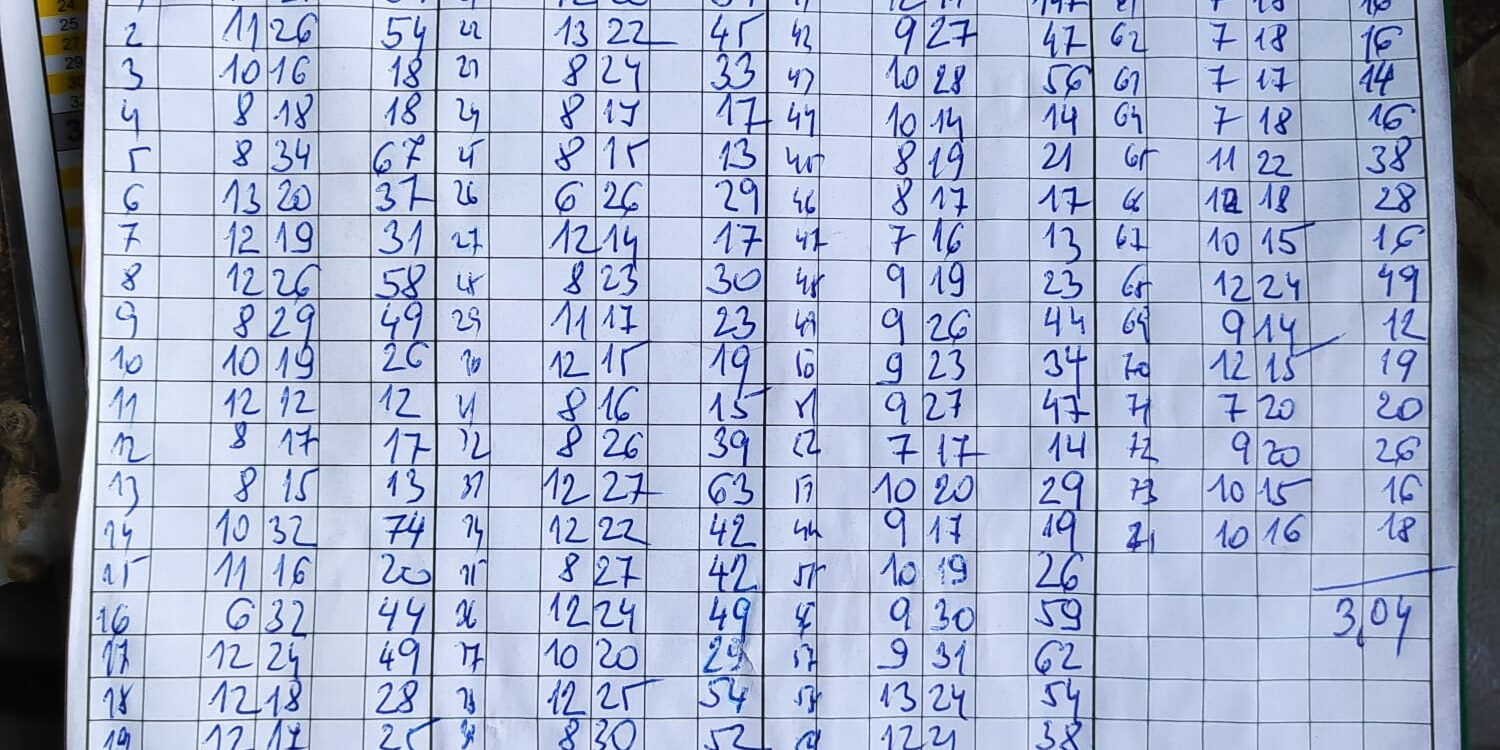 2 11 26 54 22 13 22 45 42 9 27 47 62 7 18 16
3 10 16 18 23 8 24 33 43 10 28 56 63 7 17 14
4 8 18 18 24 8 17 17 44 10 14 14 64 7 18 16
5 8 34 67 25 8 15 13 45 8 19 21 65 11 22 38
6 13 20 37 26 6 26 29 46 8 17 17 66 12 18 28
7 12 19 31 27 12 14 17 47 7 16 13 67 10 15 16
8 12 26 58 28 8 23 30 48 9 19 23 68 12 24 49
9 8 29 49 29 11 17 23 49 9 26 44 69 9 14 12
10 10 19 26 30 12 15 19 50 9 23 34 70 12 15 19
11 12 12 12 31 8 16 15 51 9 27 47 71 7 20 20
12 8 17 17 32 8 26 39 52 7 17 14 72 9 20 26
13 8 15 13 33 12 27 63 53 10 20 29 73 10 15 16
14 10 32 74 34 12 22 42 9 17 19 10 16 18
15 11 16 20 35 8 27 42 55 10 19 26
16 6 32 44 36 12 24 49 9 30 59 3,04
17 12 24 49 37 10 20 29 57 9 31 62
18 12 18 28 38 12 25 54 58 13 24 54
19 12 17 25 8 30 52 12 21 38